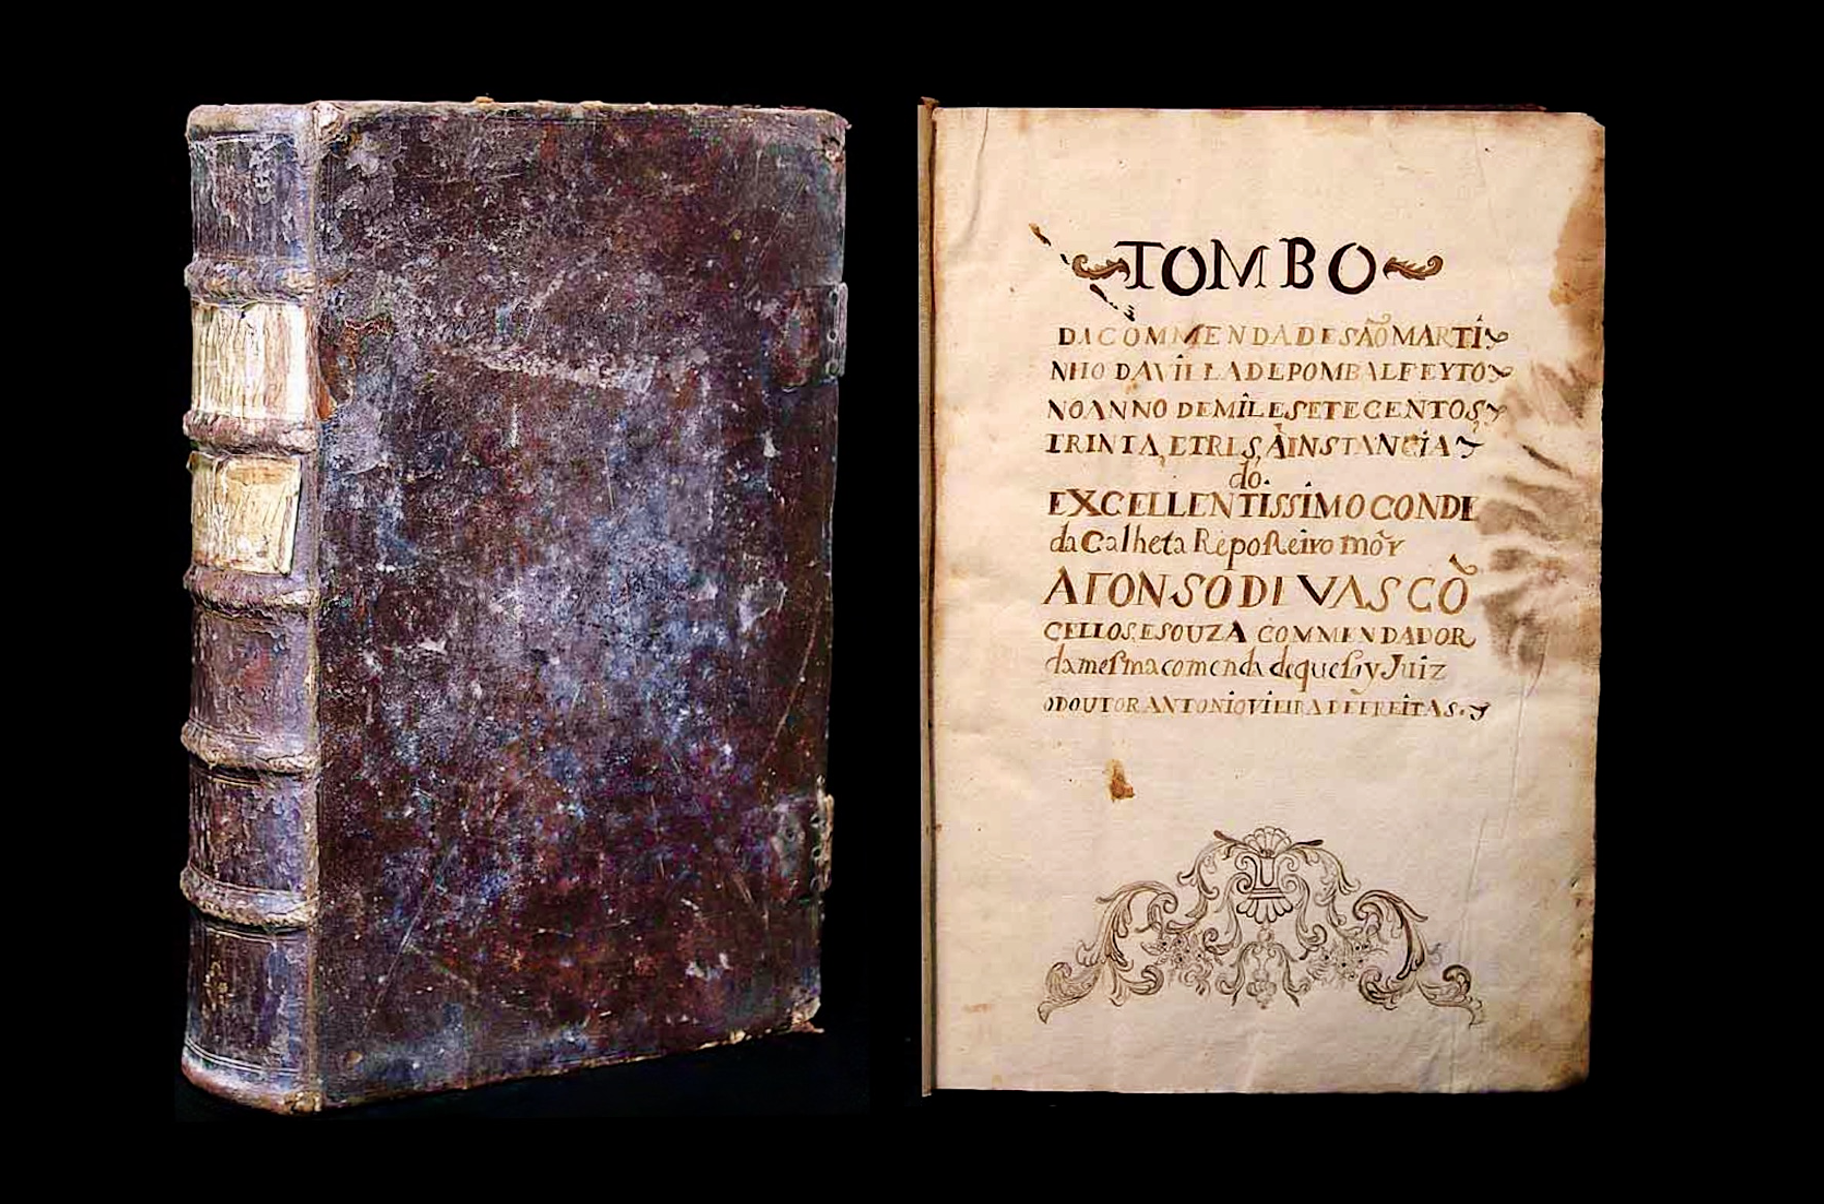 TOMBO
DA COMMENDA DE SÃO MARTÎ
NHO DA VÎLLA DE POMBAL FEYTO
NO ANNO DE MÎL E SETECENTOS,
TRINTA, E TRES, À INSTANCIA
do.
EXCELLENTISSIMO CONDE
da Calheta Reposteiro môr
AFONSO DE VASCÕ
CELLOS, E SOUZA COMMENDADOR
da mesma comenda de que hy Juiz
O DOUTOR ANTONIO VIEIRA DE FREITAS.